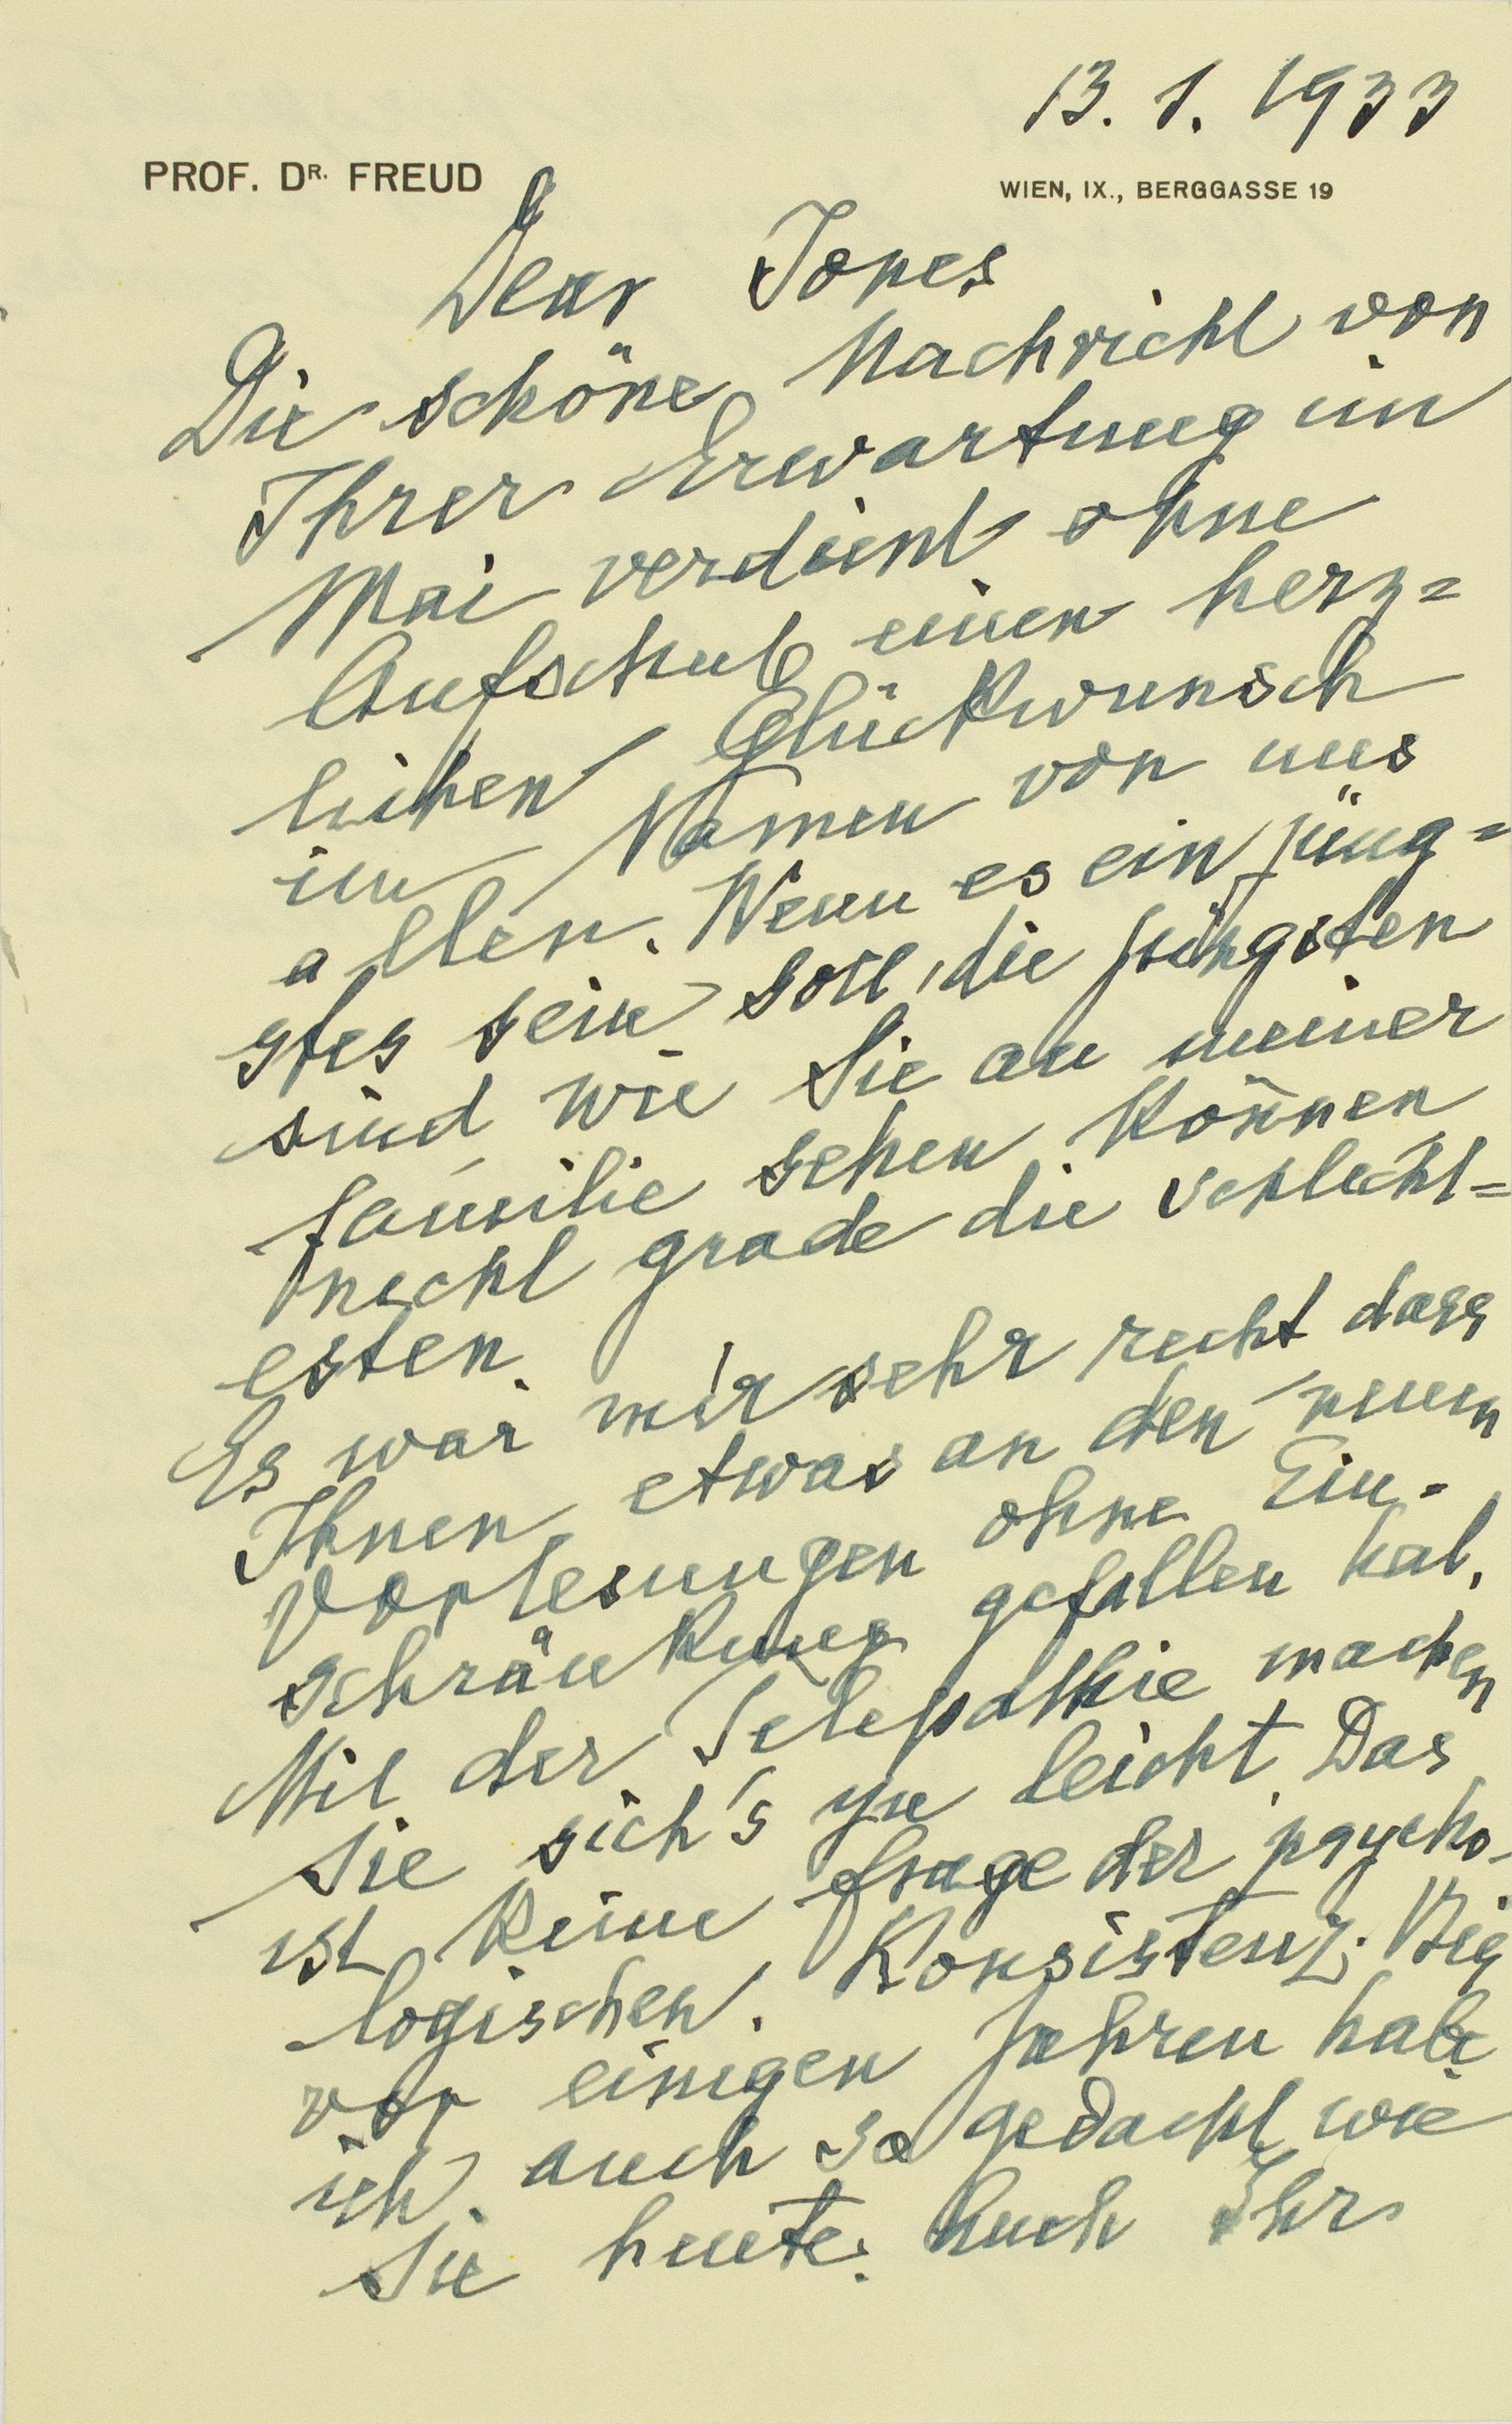 13. 1. 1933
PROF. DR. FREUD
WIEN, IX., BERGGASSE 19
Dear Jones
Die schöne Nachricht von
Ihrer Erwartung im
Mai verdient ohne
Aufschub einen herz=
lichen Glückwunsch
im Namen von uns
allen. Wenn es ein jüng=
stes sein soll, die jüngsten
sind wie Sie an meiner
Familie sehen können
nicht grade die schlecht=
esten.
Es war mir sehr recht dass
Ihnen etwas an den neuen
Vorlesungen ohne Ein-
schränkung gefallen hat.
Mit der Telepathie machen
Sie sich's zu leicht. Das
ist keine Frage der psycho-
logischen Konsistenz. Bis
vor einigen Jahren habe
ich auch so gedacht wie
Sie heute. Auch Ihr